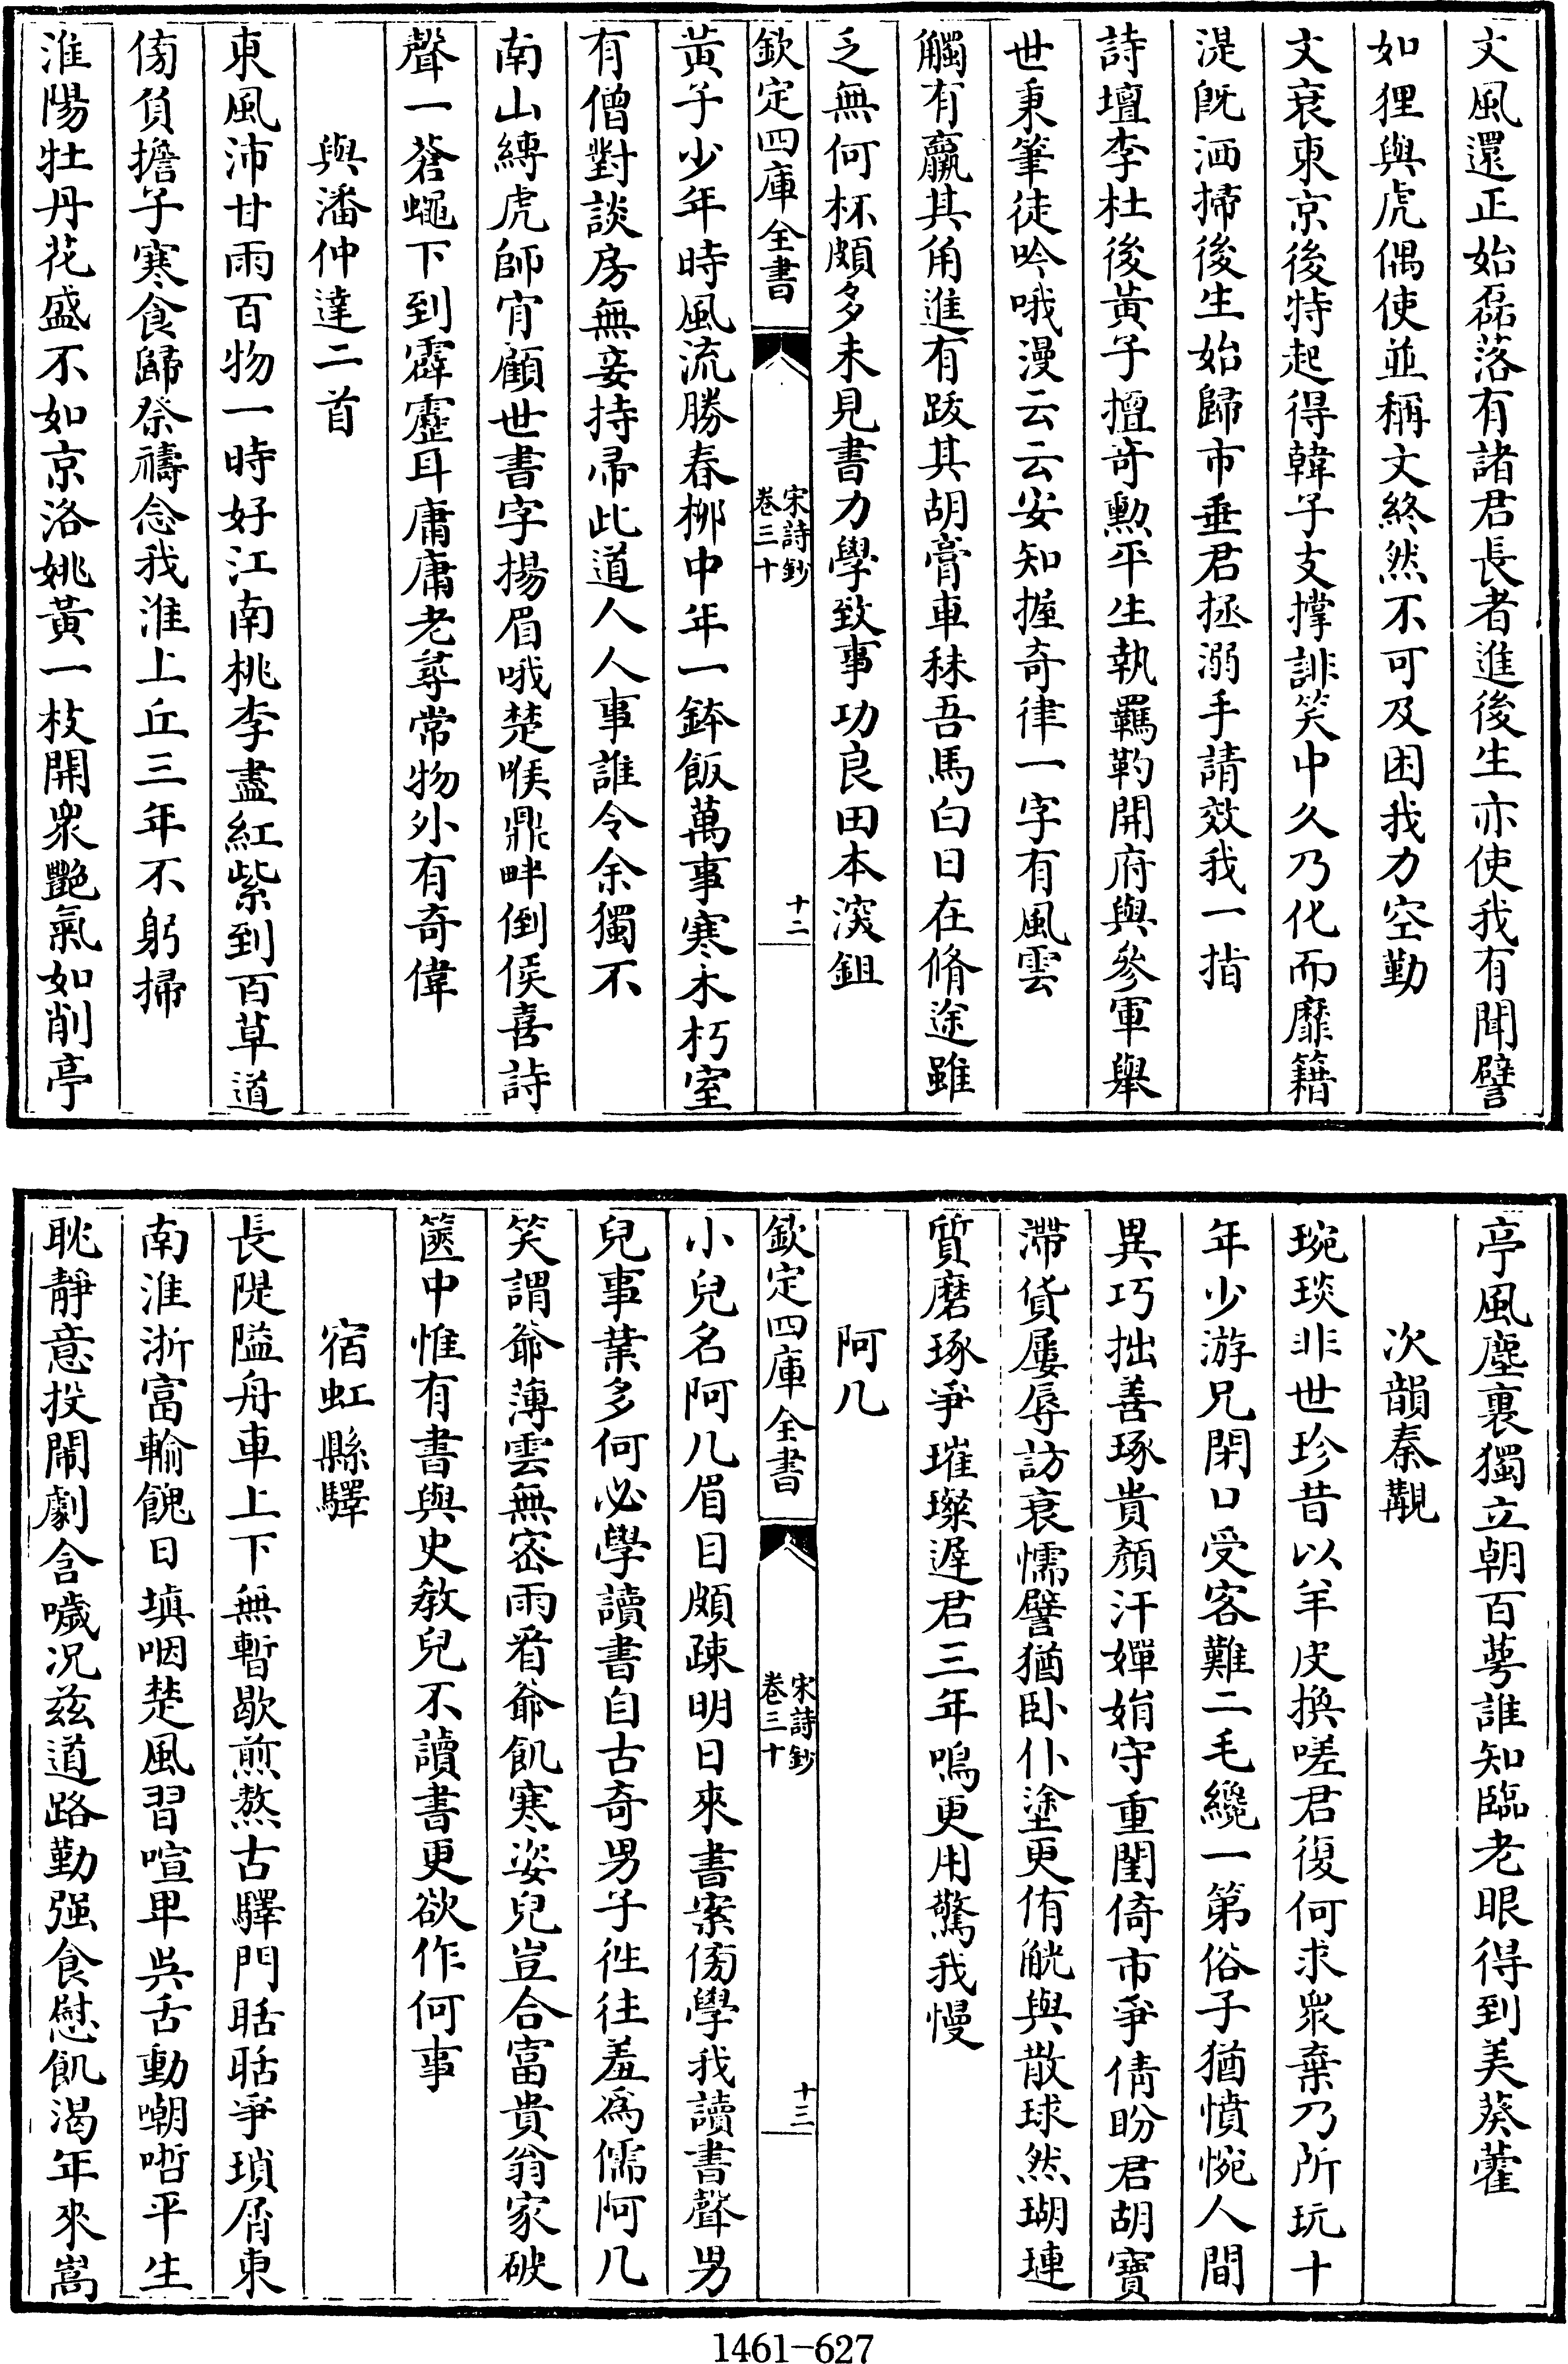 文風還正始磊落有諸君長者進後生亦使我有聞譬
如狸與虎偶使並稱文終然不可及困我力空勤
文衰東京後特起得韓子支撐誹笑中久乃化而靡籍
湜既洒掃後生始歸市垂君拯溺手請效我一指
詩壇李杜後黃子擅奇勲平生執羈靮開府與參軍舉
世秉筆徒吟哦漫云云安知握奇律一字有風雲
觸有羸其角進有跋其胡膏車秣吾馬白日在脩途雖
乏無何杯頗多未見書力學致事功良田本深鉏
欽定四庫全書
宋詩鈔
卷三十
十二
黃子少年時風流勝春柳中年一鉢飯萬事寒木朽室
有僧對談房無妾持帚此道人人事誰令余獨不
南山縳虎師肯顧世書字揚眉哦楚喉鼎畔倒侯喜詩
聲一蒼蠅下到霹靂耳庸庸老尋常物外有奇偉
與潘仲達二首
東風沛甘雨百物一時好江南桃李盡紅紫到百草道
傍負擔子寒食歸祭禱念我淮上丘三年不躬掃
淮陽牡丹花盛不如京洛姚黃一枝開衆艷氣如削亭
亭風塵裏獨立朝百萼誰知臨老眼得到美葵藿
次韻秦覯
琬琰非世珍昔以羊皮換嗟君復何求衆棄乃所玩十
年少游兄閉口受客難二毛纔一第俗子猶憤惋人間
異巧拙善琢貴顏汗嬋娟守重閨倚市爭倩盼君胡寶
滯貨屢辱訪衰懦譬猶卧仆塗更侑觥與散球然瑚璉
質磨琢爭璀璨遲君三年鳴更用驚我慢
阿几
欽定四庫全書
宋詩鈔
卷三十
十三
小兒名阿几眉目頗疎明日來書案傍學我讀書聲男
兒事業多何必學讀書自古奇男子徃往羞為儒阿几
笑謂爺薄雲無密雨看爺飢寒姿兒豈合富貴翁家破
篋中惟有書與史敎兒不讀書更欲作何事
宿虹縣驛
長隄隘舟車上下無暫歇煎熬古驛門聒聒爭瑣屑東
南淮浙富輸餽日填咽楚風習喧卑吳舌動嘲哳平生
耽靜意投鬧劇含噦况兹道路勤强食慰飢渴年來嵩
1461-627